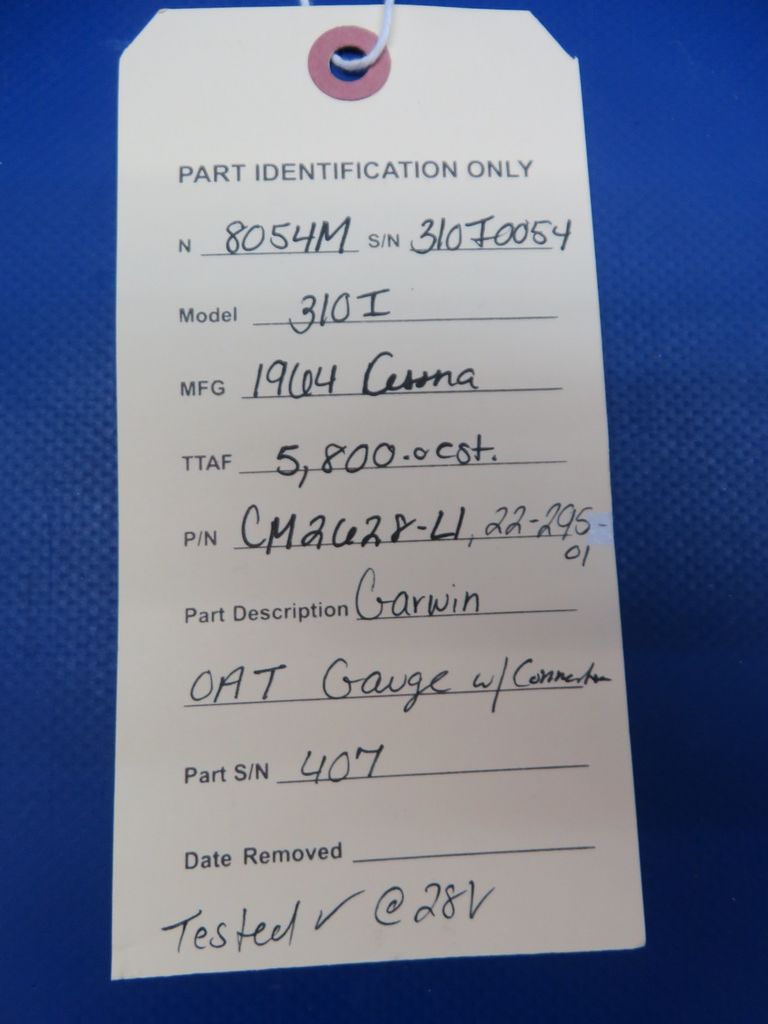 PART IDENTIFICATION ONLY
N 8054M S/N 310I0054
Model 310I
MFG 1964 Cessna
TTAF 5,800.0 est.
P/N CM2628-L1, 22-295-
01
Part Description Garwin
OAT Gauge w/ Connector
Part S/N 407
Date Removed
Tested ✓ @ 28V